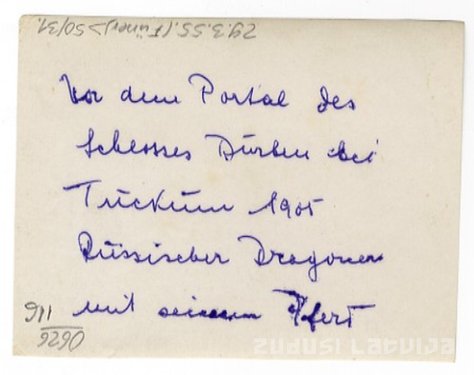 29.3.55. (Füner) > 50/31
Vor dem Portal des
Schlosses Durben bei
Tuckum 1905
Russischer Dragoner
mit seinem Pferd
116
6290
ZUDUSI LATVIJA